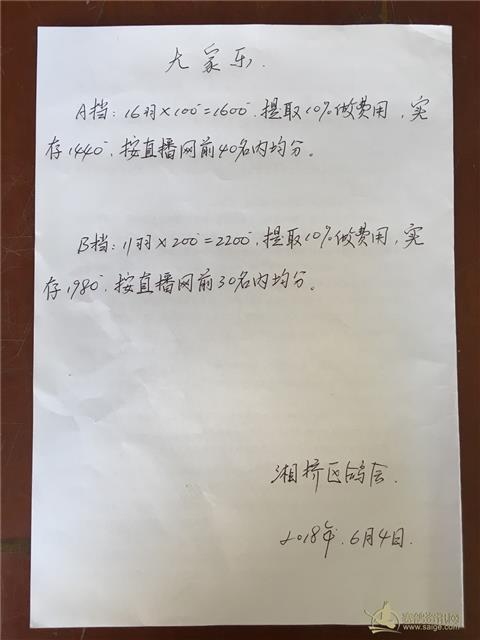 大家乐.
A挡：16羽×100=1600,提取10%做费用,实
存1440,按直播网前40名内均分。
B挡：11羽×200=2200,提取10%做费用,实
存1980,按直播网前30名内均分。
湘桥区鸽会.
2018年.6月4日.
www.saige.com